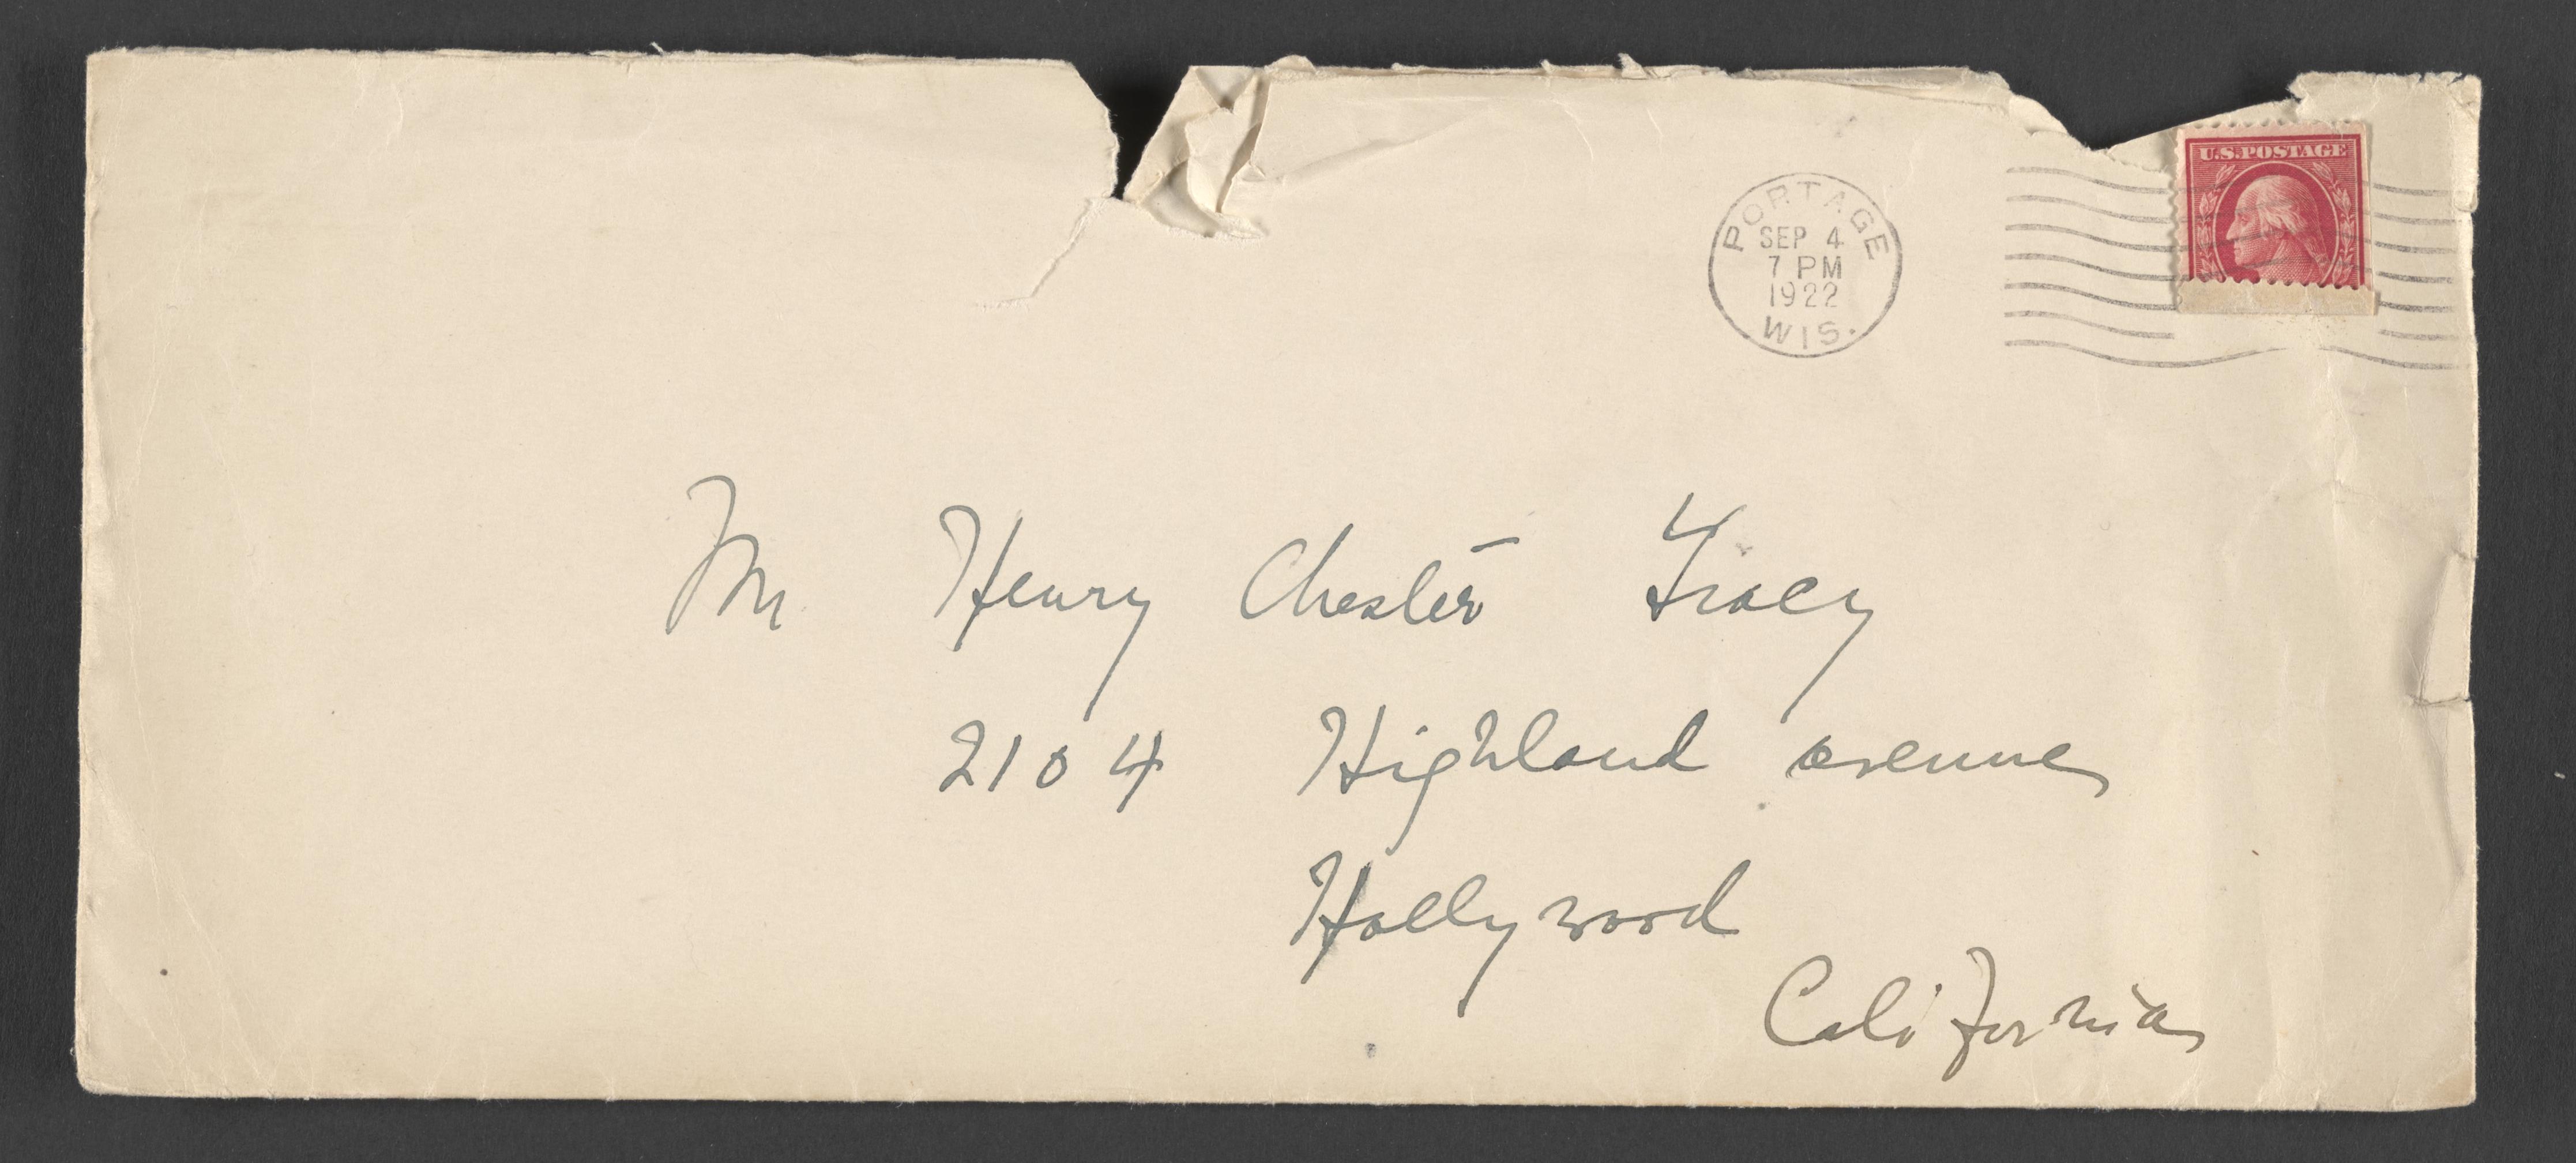 U.S. POSTAGE
PORTAGE
SEP 4
7 PM
1922
WIS.
Mr Henry Chester Tracy
2104 Highland avenue
Hollywood
California